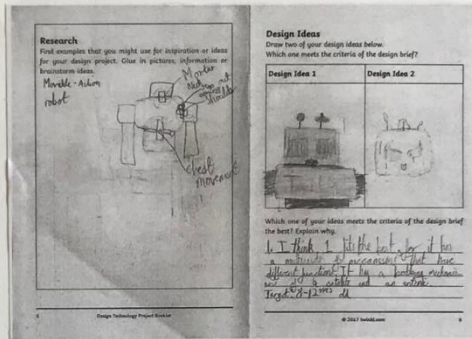 Research
Find examples that you might use for inspiration or ideas
for your design project. Glue in pictures, information or
brainstorm ideas.
Movable - Action
robot
chest
movement
Design Technology Project Booklet
Design Ideas
Draw two of your design ideas below.
Which one meets the criteria of the design brief?
Design Idea 1
Design Idea 2
Which one of your ideas meets the criteria of the design brief
the best? Explain why.
1. I think 1 fits the best for it has
a mechanisms that have
different functions. It has a mechanism
and it is
Target 8-12 yrs old
© 2017 twinkl.com